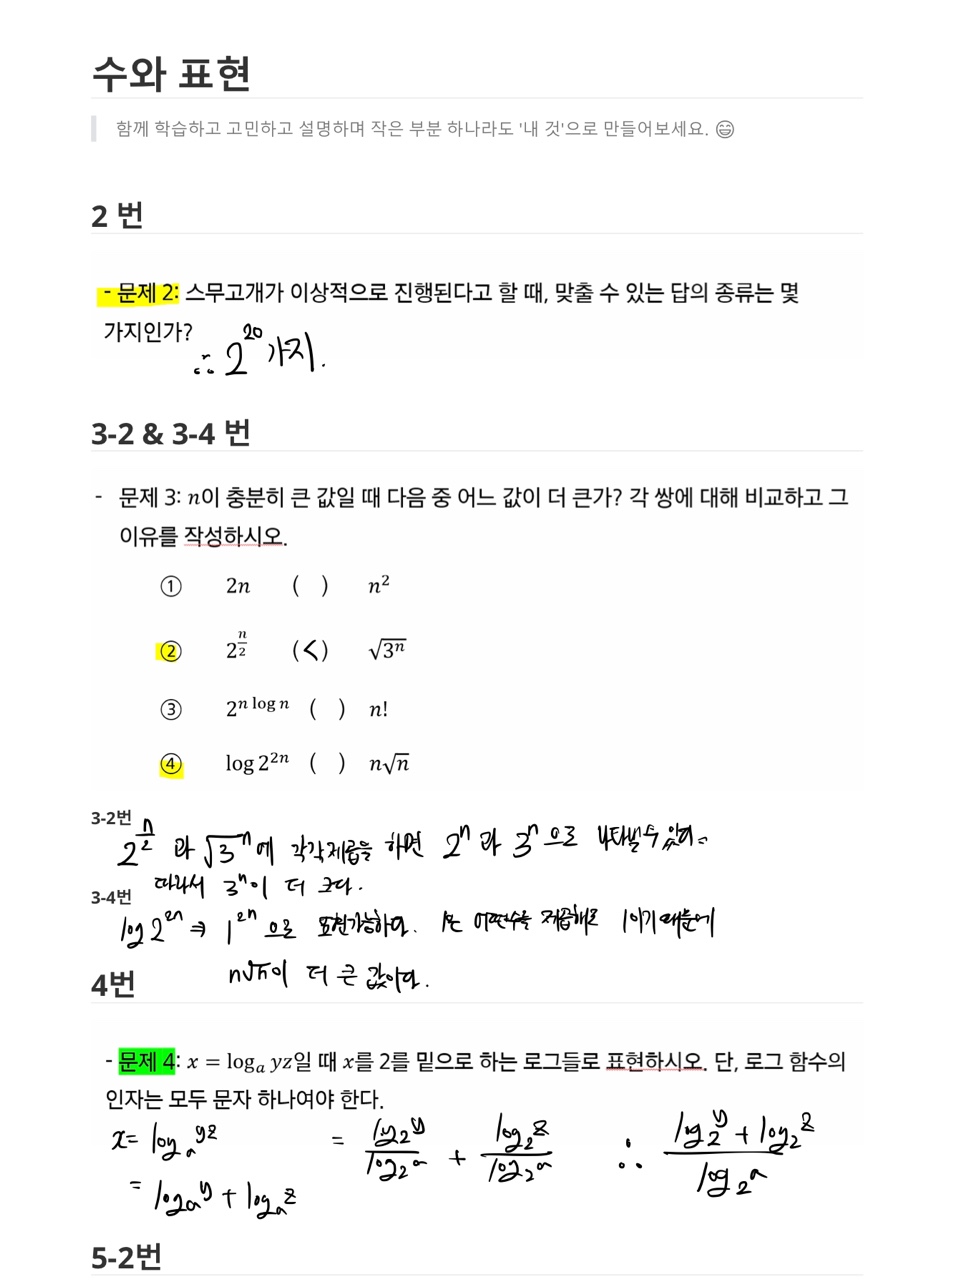 수와 표현
함께 학습하고 고민하고 설명하며 작은 부분 하나라도 '내 것'으로 만들어보세요. 😄
2 번
- 문제 2: 스무고개가 이상적으로 진행된다고 할 때, 맞출 수 있는 답의 종류는 몇
가지인가?
∴ 2^20 가지.
3-2 & 3-4 번
- 문제 3: n이 충분히 큰 값일 때 다음 중 어느 값이 더 큰가? 각 쌍에 대해 비교하고 그
이유를 작성하시오.
① 2n ( ) n²
② 2^(n/2) (<) √3ⁿ
③ 2^(n log n) ( ) n!
④ log 2^(2n) ( ) n√n
3-2번
2^(n/2) 과 √3ⁿ에 각각 제곱을 하면 2ⁿ과 3ⁿ으로 나타낼 수 있다.
따라서 3ⁿ이 더 크다.
3-4번
log 2^(2n) ⇒ 1^(2n) 으로 표현가능하다. 1은 어떤수을 제곱해도 1이기 때문에
n√n이 더 큰 값이다.
4번
- 문제 4: x = logₐ yz일 때 x를 2를 밑으로 하는 로그들로 표현하시오. 단, 로그 함수의
인자는 모두 문자 하나여야 한다.
x = logₐ yz = log₂ y / log₂ a + log₂ z / log₂ a ∴ (log₂ y + log₂ z) / log₂ a
= logₐ y + logₐ z
5-2번